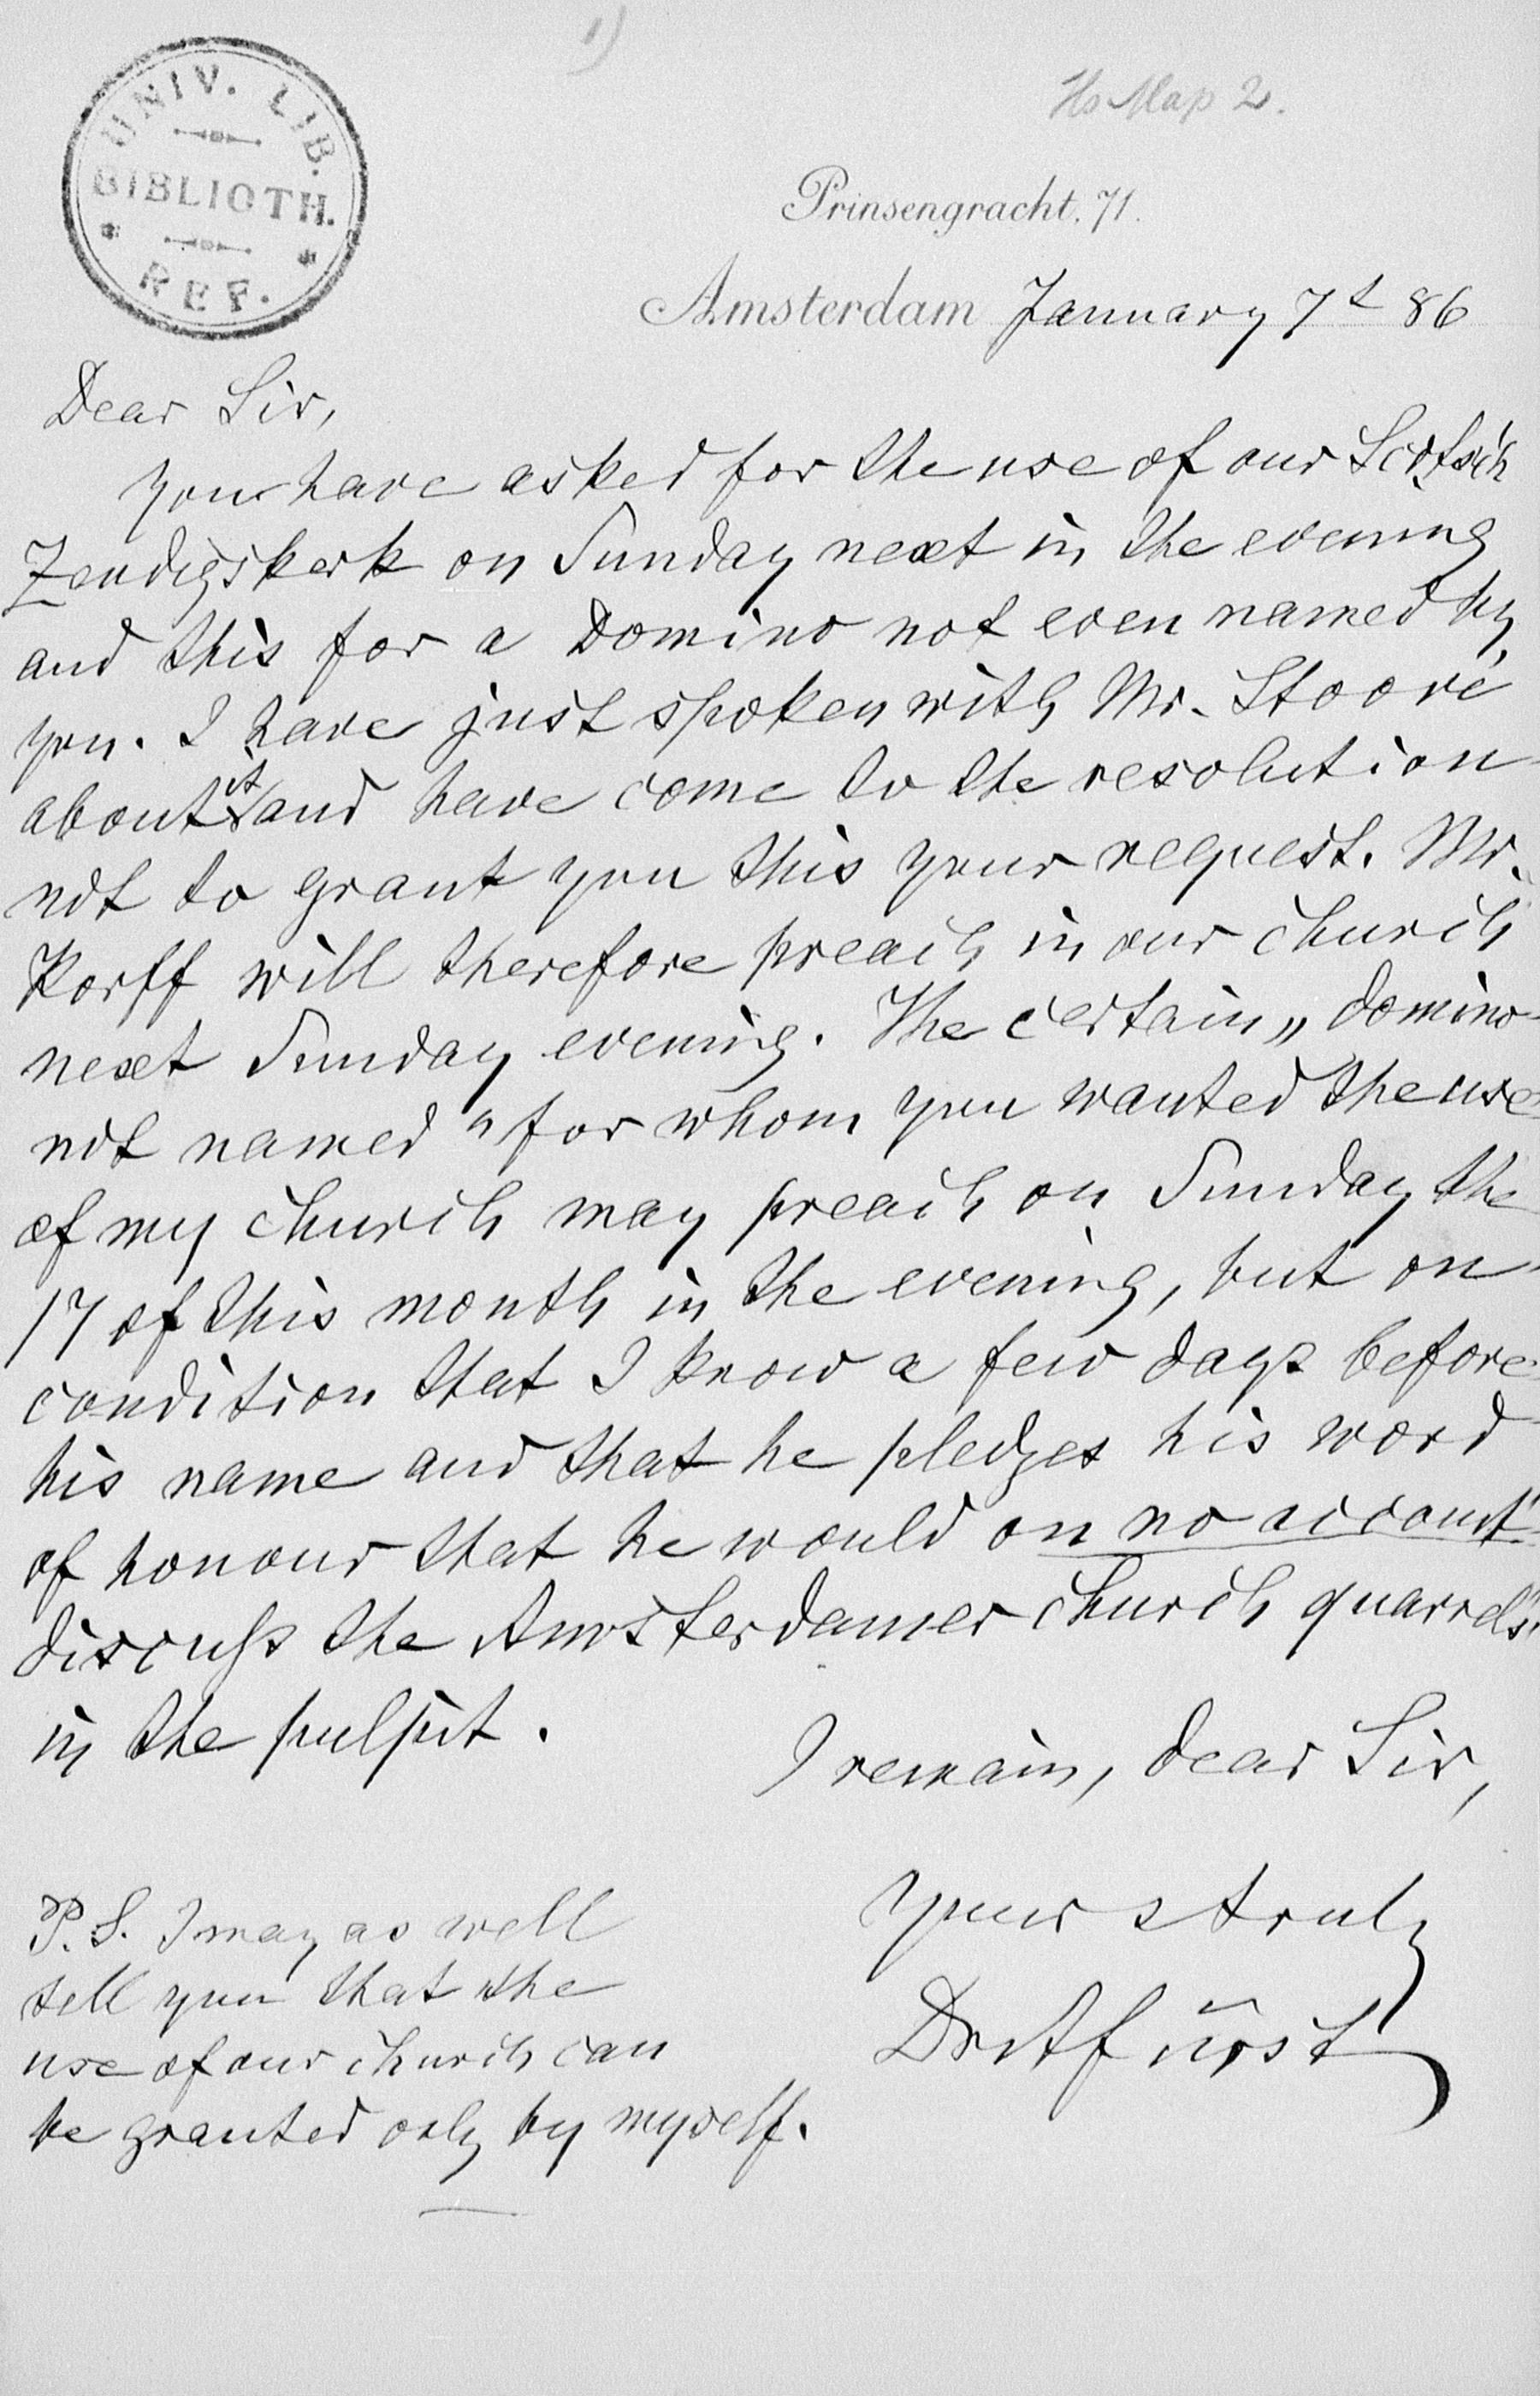 1)
Hs Map 2.
UNIV. LIB.
BIBLIOTH.
REF.
Prinsengracht. 71.
Amsterdam January 7t 86
Dear Sir,
you have asked for the use of our Scotsch
Zendigskerk on Sunday next in the evening
and this for a Domino not even named by
you. I have just spoken with Mr. Stoové
about it and have come to the resolution
not to grant you this your request. Mr.
Korff will therefore preach in our church
next Sunday evening. The certain „domino
not named" for whom you wanted the use
of my church may preach on Sunday the
17 of this month in the evening, but on
condition that I know a few days before
his name and that he pledges his word
of honour that he would on no account
discuss the Amsterdamer church quarrels
in the pulpit.
I remain, dear Sir,
Yours truly
Dr A fürst
P.S. I may as well
tell you that the
use of our church can
be granted only by myself.